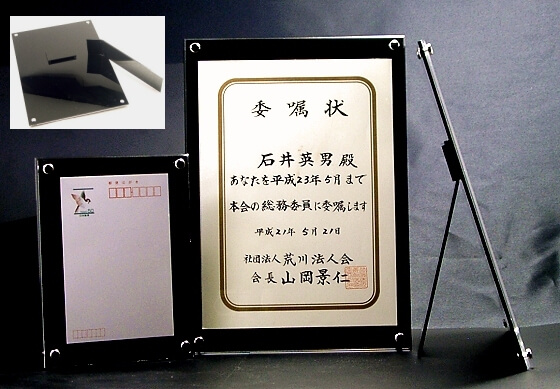 委嘱状
石井英男殿
あなたを平成23年5月まで
本会の総務委員に委嘱します
平成21年5月21日
社団法人荒川法人会
会長山岡景仁
50